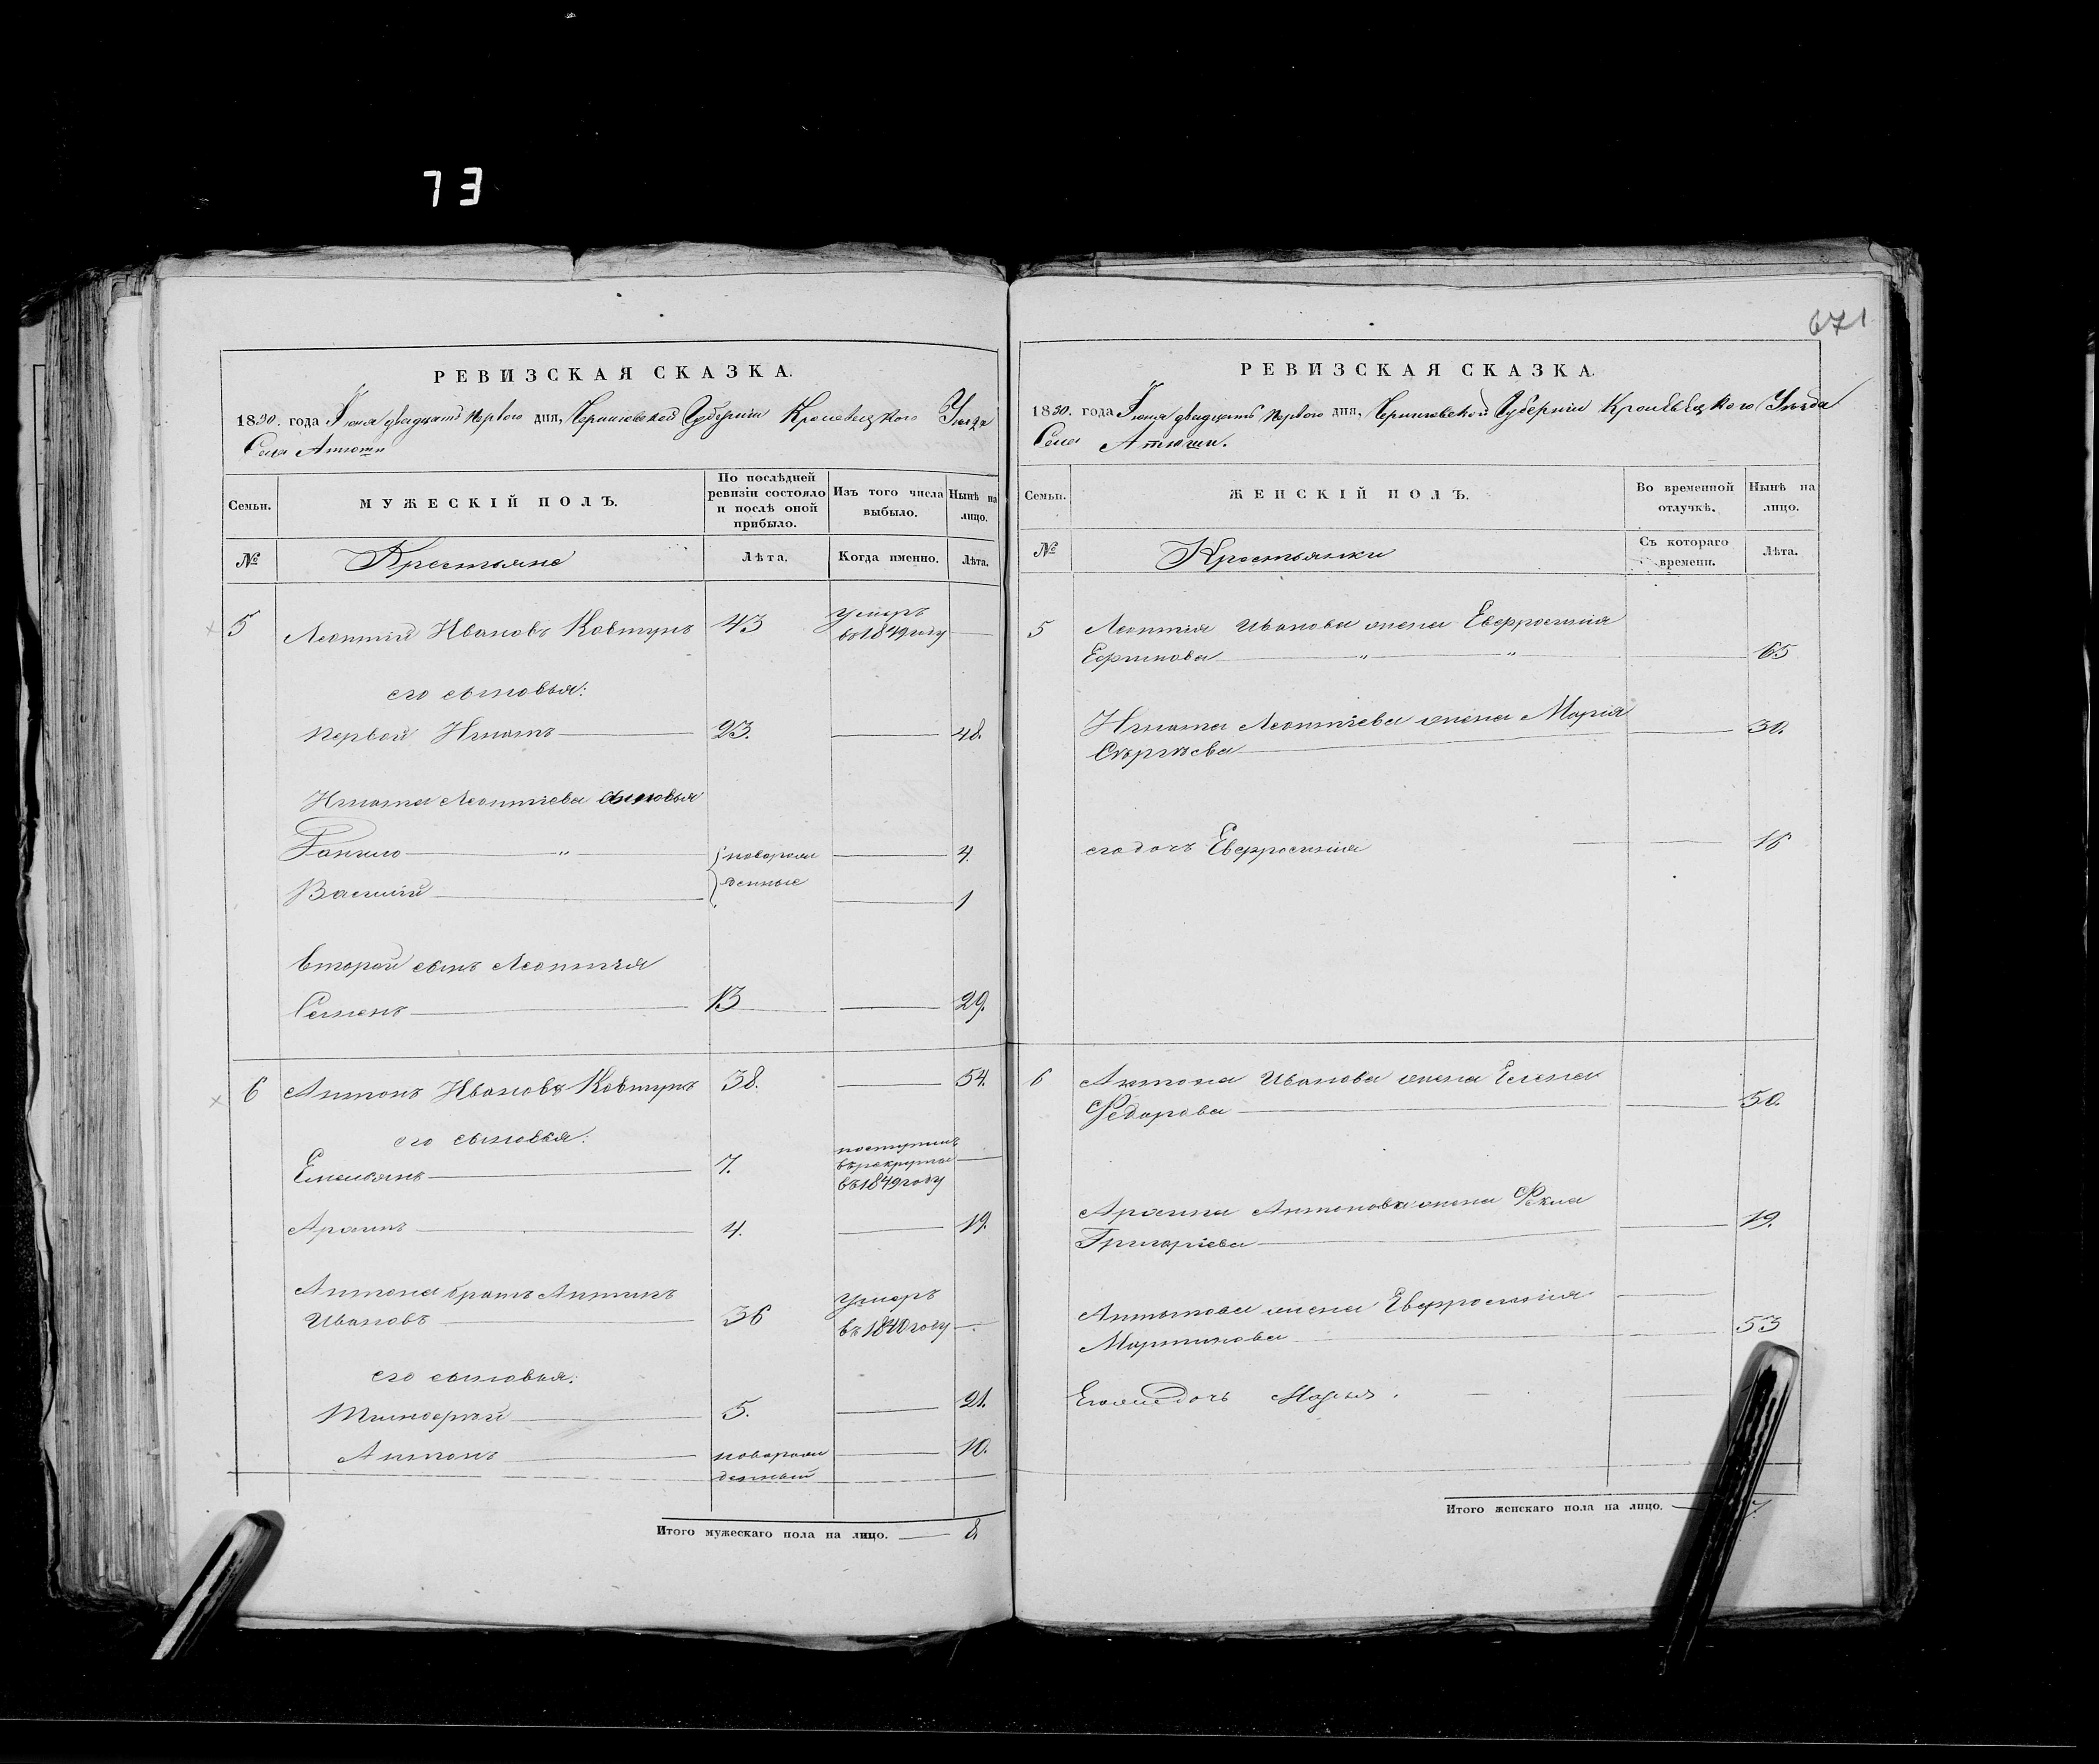 73
РЕВИЗСКАЯ СКАЗКА.
1850. года Іюня двадцать перваго дня, Черниговской Губерніи Кролевецкого Уѣзда
Села Атюши
Семьи.
МУЖЕСКІЙ ПОЛЪ.
По послѣдней ревизіи состояло и послѣ оной прибыло.
Изъ того числа выбыло.
Нынѣ на лицо.
№
Крестьяне
Лѣта.
Когда именно.
Лѣта.
5 Леонтій Ивановъ Ковтунъ 43 умеръ
въ 1849 году
его сыновья:
первой Игнатъ 23. 48.
Игната Леонтіева сыновья
Данило " новорож 4.
Василій денные 1
второй сынъ Леонтія
Семенъ 13 29.
6 Антонъ Ивановъ Ковтунъ 38. 54.
его сыновья:
Емельянъ 7. поступилъ
въ рекруты
въ 1849 году
4. 19.
Антона братъ Антипъ
Ивановъ 36 умеръ
въ 1840 году
его сыновья:
Тимофей 5. 21.
Антонъ новорож 10.
денный
Итого мужескаго пола на лицо. 8.
671
РЕВИЗСКАЯ СКАЗКА.
1850. года Іюня двадцать перваго дня, Черниговской Губерніи Кролевецкого Уѣзда
Села Атюши.
Семьи.
ЖЕНСКІЙ ПОЛЪ.
Во временной отлучкѣ.
Нынѣ на лицо.
№
Крестьянки
Съ котораго времени.
Лѣта.
5 Леонтія Иванова жена Евфросинія
" " 65
Игната Леонтіева жена Марія
Сергѣева 38.
его дочь Евфросинія 16
6 Антона Иванова жена Елена
Федорова 50.
Антонова жена Фекла
Григоріева 19.
Антипова жена Евфросинія
Мартинова 53
дочь Марья.
Итого женскаго пола на лицо. 7